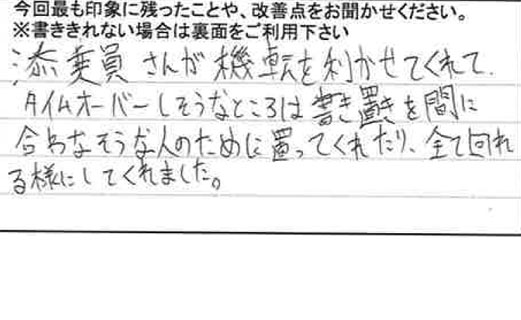 今回最も印象に残ったことや、改善点をお聞かせください。
※書ききれない場合は裏面をご利用下さい
添乗員さんが機転を利かせてくれて、
タイムオーバーしそうなところは書き置きを間に
合わなそうな人のために置ってくれたり、全て回れ
る様にしてくれました。